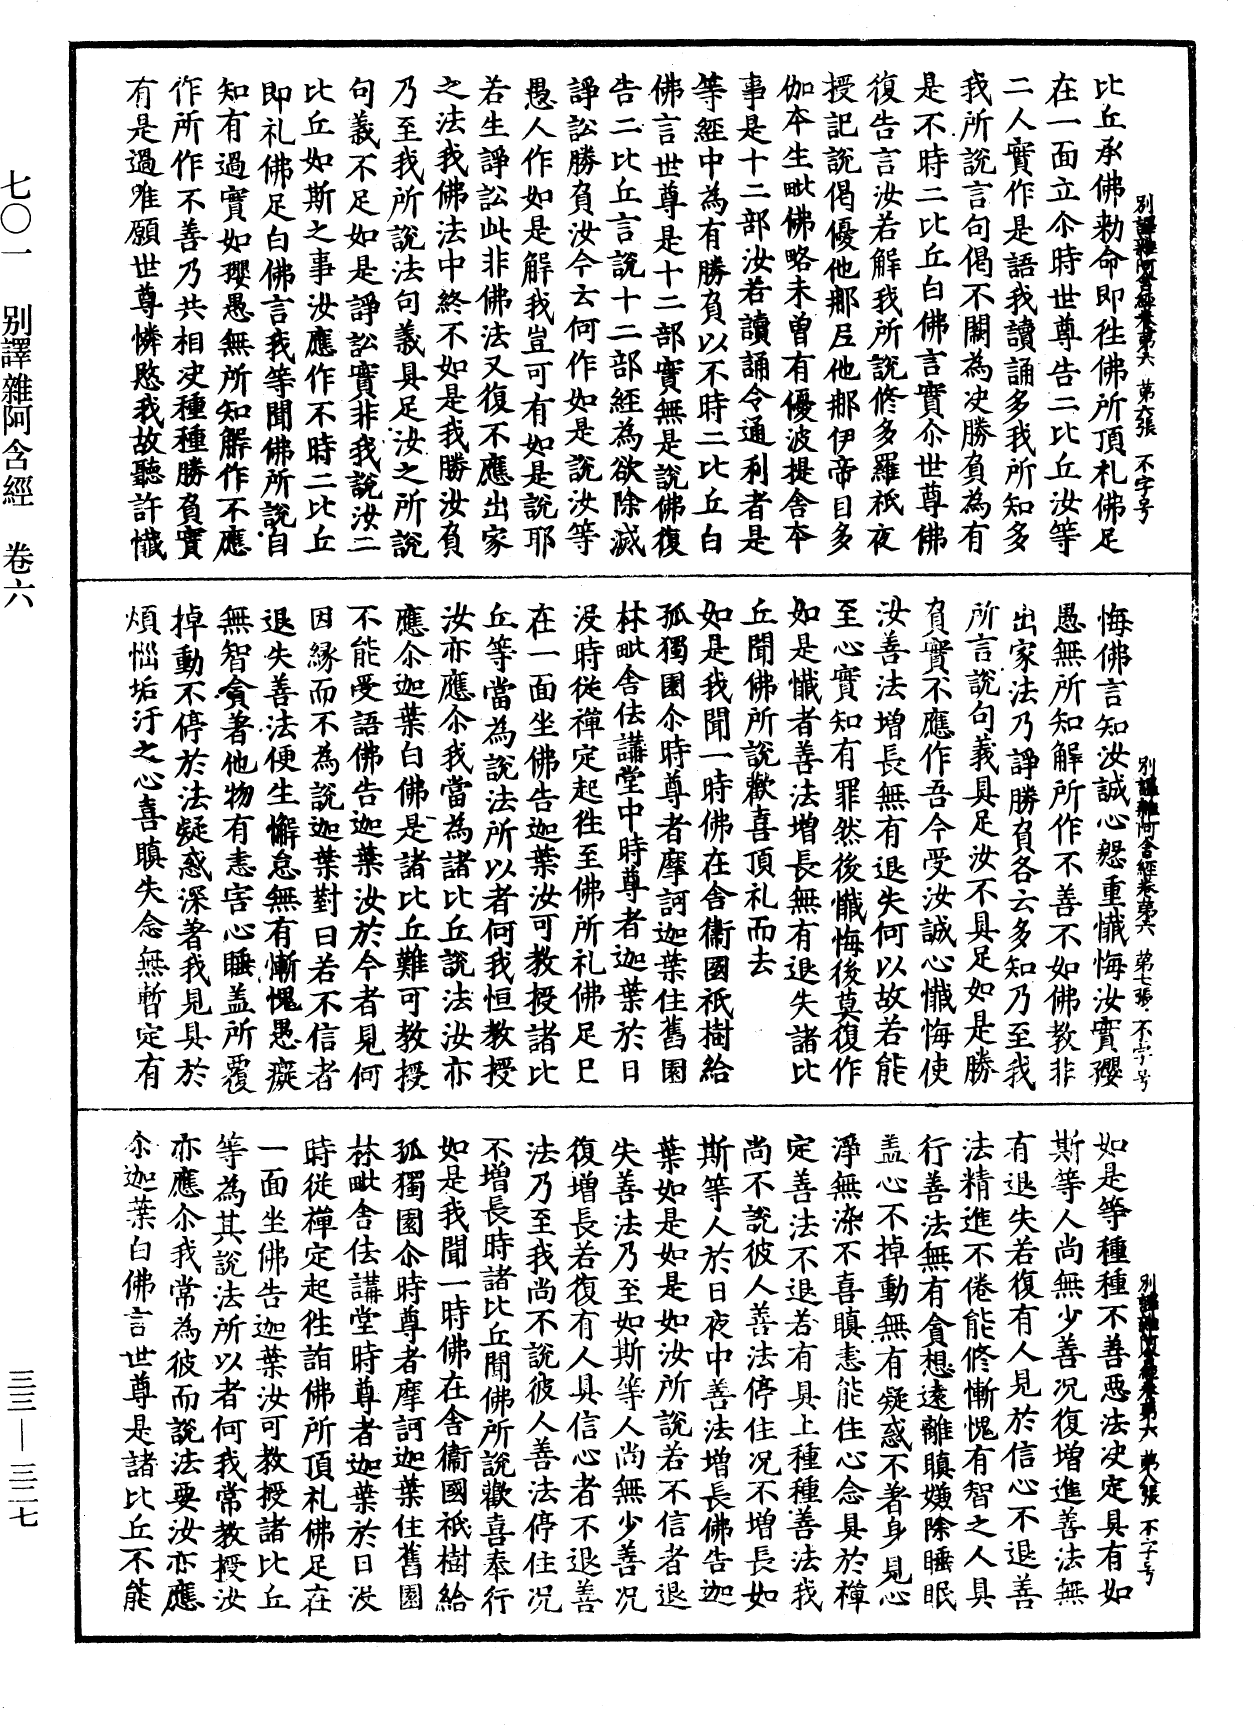 別譯雜阿含經卷第六 第六張 不字号
比丘承佛勑命即往佛所頂礼佛足
在一面立尒時世尊告二比丘汝等
二人實作是語我讀誦多我所知多
我所說言句偈不闕為决勝負為有
是不時二比丘白佛言實尒世尊佛
復告言汝若解我所說修多羅祇夜
授記說偈優他那尼他那伊帝目多
伽本生毗佛略未曾有優波提舍本
事是十二部汝若讀誦令通利者是
等經中為有勝負以不時二比丘白
佛言世尊是十二部實無是說佛復
告二比丘言說十二部經為欲除滅
諍訟勝負汝今云何作如是說汝等
愚人作如是解我豈可有如是說耶
若生諍訟此非佛法又復不應出家
之法我佛法中終不如是我勝汝負
乃至我所說法句義具足汝之所說
句義不足如是諍訟實非我說汝二
比丘如斯之事汝應作不時二比丘
即礼佛足白佛言我等聞佛所說自
知有過實如瓔愚無所知解作不應
作所作不善乃共相决種種勝負實
有是過唯願世尊憐愍我故聽許懺
別譯雜阿含經卷第六 第七張 不字号
悔佛言知汝誠心慇重懺悔汝實瓔
愚無所知解所作不善不如佛教非
出家法乃諍勝負各云多知乃至我
所言說句義具足汝不具足如是勝
負實不應作吾今受汝誠心懺悔使
汝善法增長無有退失何以故若能
至心實知有罪然後懺悔後莫復作
如是懺者善法增長無有退失諸比
丘聞佛所說歡喜頂礼而去
如是我聞一時佛在舍衞國祇樹給
孤獨園尒時尊者摩訶迦葉住舊園
林毗舍佉講堂中時尊者迦葉於日
没時從禪定起往至佛所礼佛足已
在一面坐佛告迦葉汝可教授諸比
丘等當為說法所以者何我恒教授
汝亦應尒我當為諸比丘說法汝亦
應尒迦葉白佛是諸比丘難可教授
不能受語佛告迦葉汝於今者見何
因緣而不為說迦葉對曰若不信者
退失善法便生懈怠無有慚愧愚癡
無智貪著他物有恚害心睡盖所覆
掉動不停於法疑惑深著我見具於
煩惱垢汙之心喜瞋失念無暫定有
別譯雜阿含經卷第六 第八張 不字号
如是等種種不善惡法决定具有如
斯等人尚無少善况復增進善法無
有退失若復有人見於信心不退善
法精進不倦能修慚愧有智之人具
行善法無有貪想遠離瞋嫌除睡眠
盖心不掉動無有疑惑不著身見心
淨無染不喜瞋恚能住心念具於禪
定善法不退若有具上種種善法我
尚不說彼人善法停住况不增長如
斯等人於日夜中善法增長佛告迦
葉如是如是如汝所說若不信者退
失善法乃至如斯等人尚無少善况
復增長若復有人具信心者不退善
法乃至我尚不說彼人善法停住况
不增長時諸比丘聞佛所說歡喜奉行
如是我聞一時佛在舍衞國祇樹給
孤獨園尒時尊者摩訶迦葉住舊園
林毗舍佉講堂時尊者迦葉於日没
時從禪定起往詣佛所頂礼佛足在
一面坐佛告迦葉汝可教授諸比丘
等為其說法所以者何我常教授汝
亦應尒我常為彼而說法要汝亦應
尒迦葉白佛言世尊是諸比丘不能
七〇一 別譯雜阿含經 卷六
三三—三二七